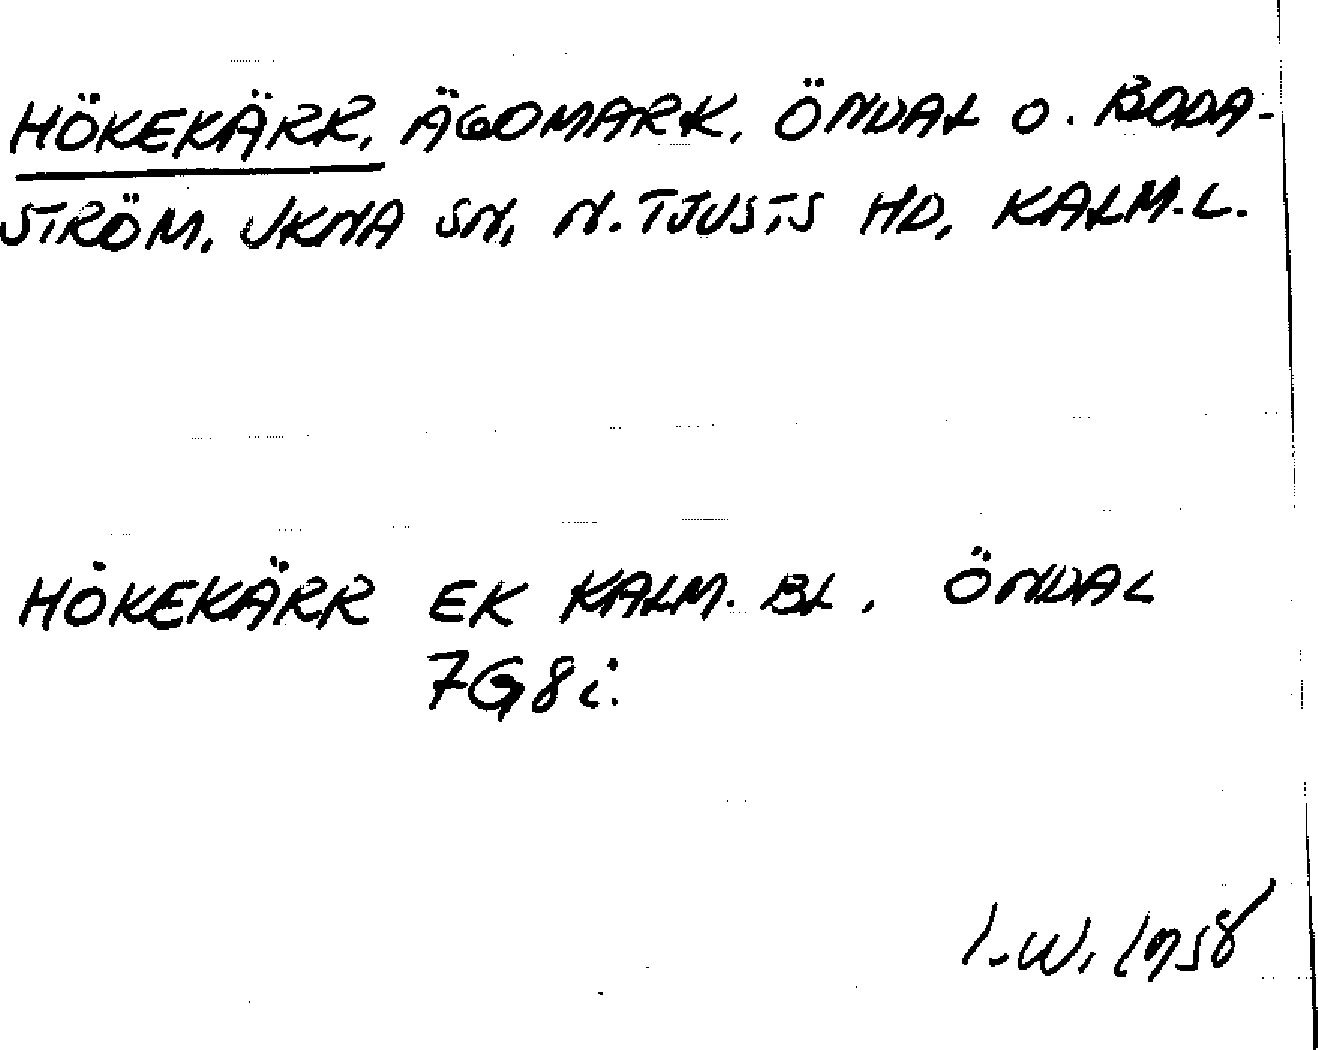 HÖKEKÄRR, ÄGOMARK, ÖNDAL O. BODA-
STRÖM, UKNA SN, N. TJUSTS HD, KALM. L.
HÖKEKÄRR EK KALM. BL. ÖNDAL
7G8i.
I.W. 1958